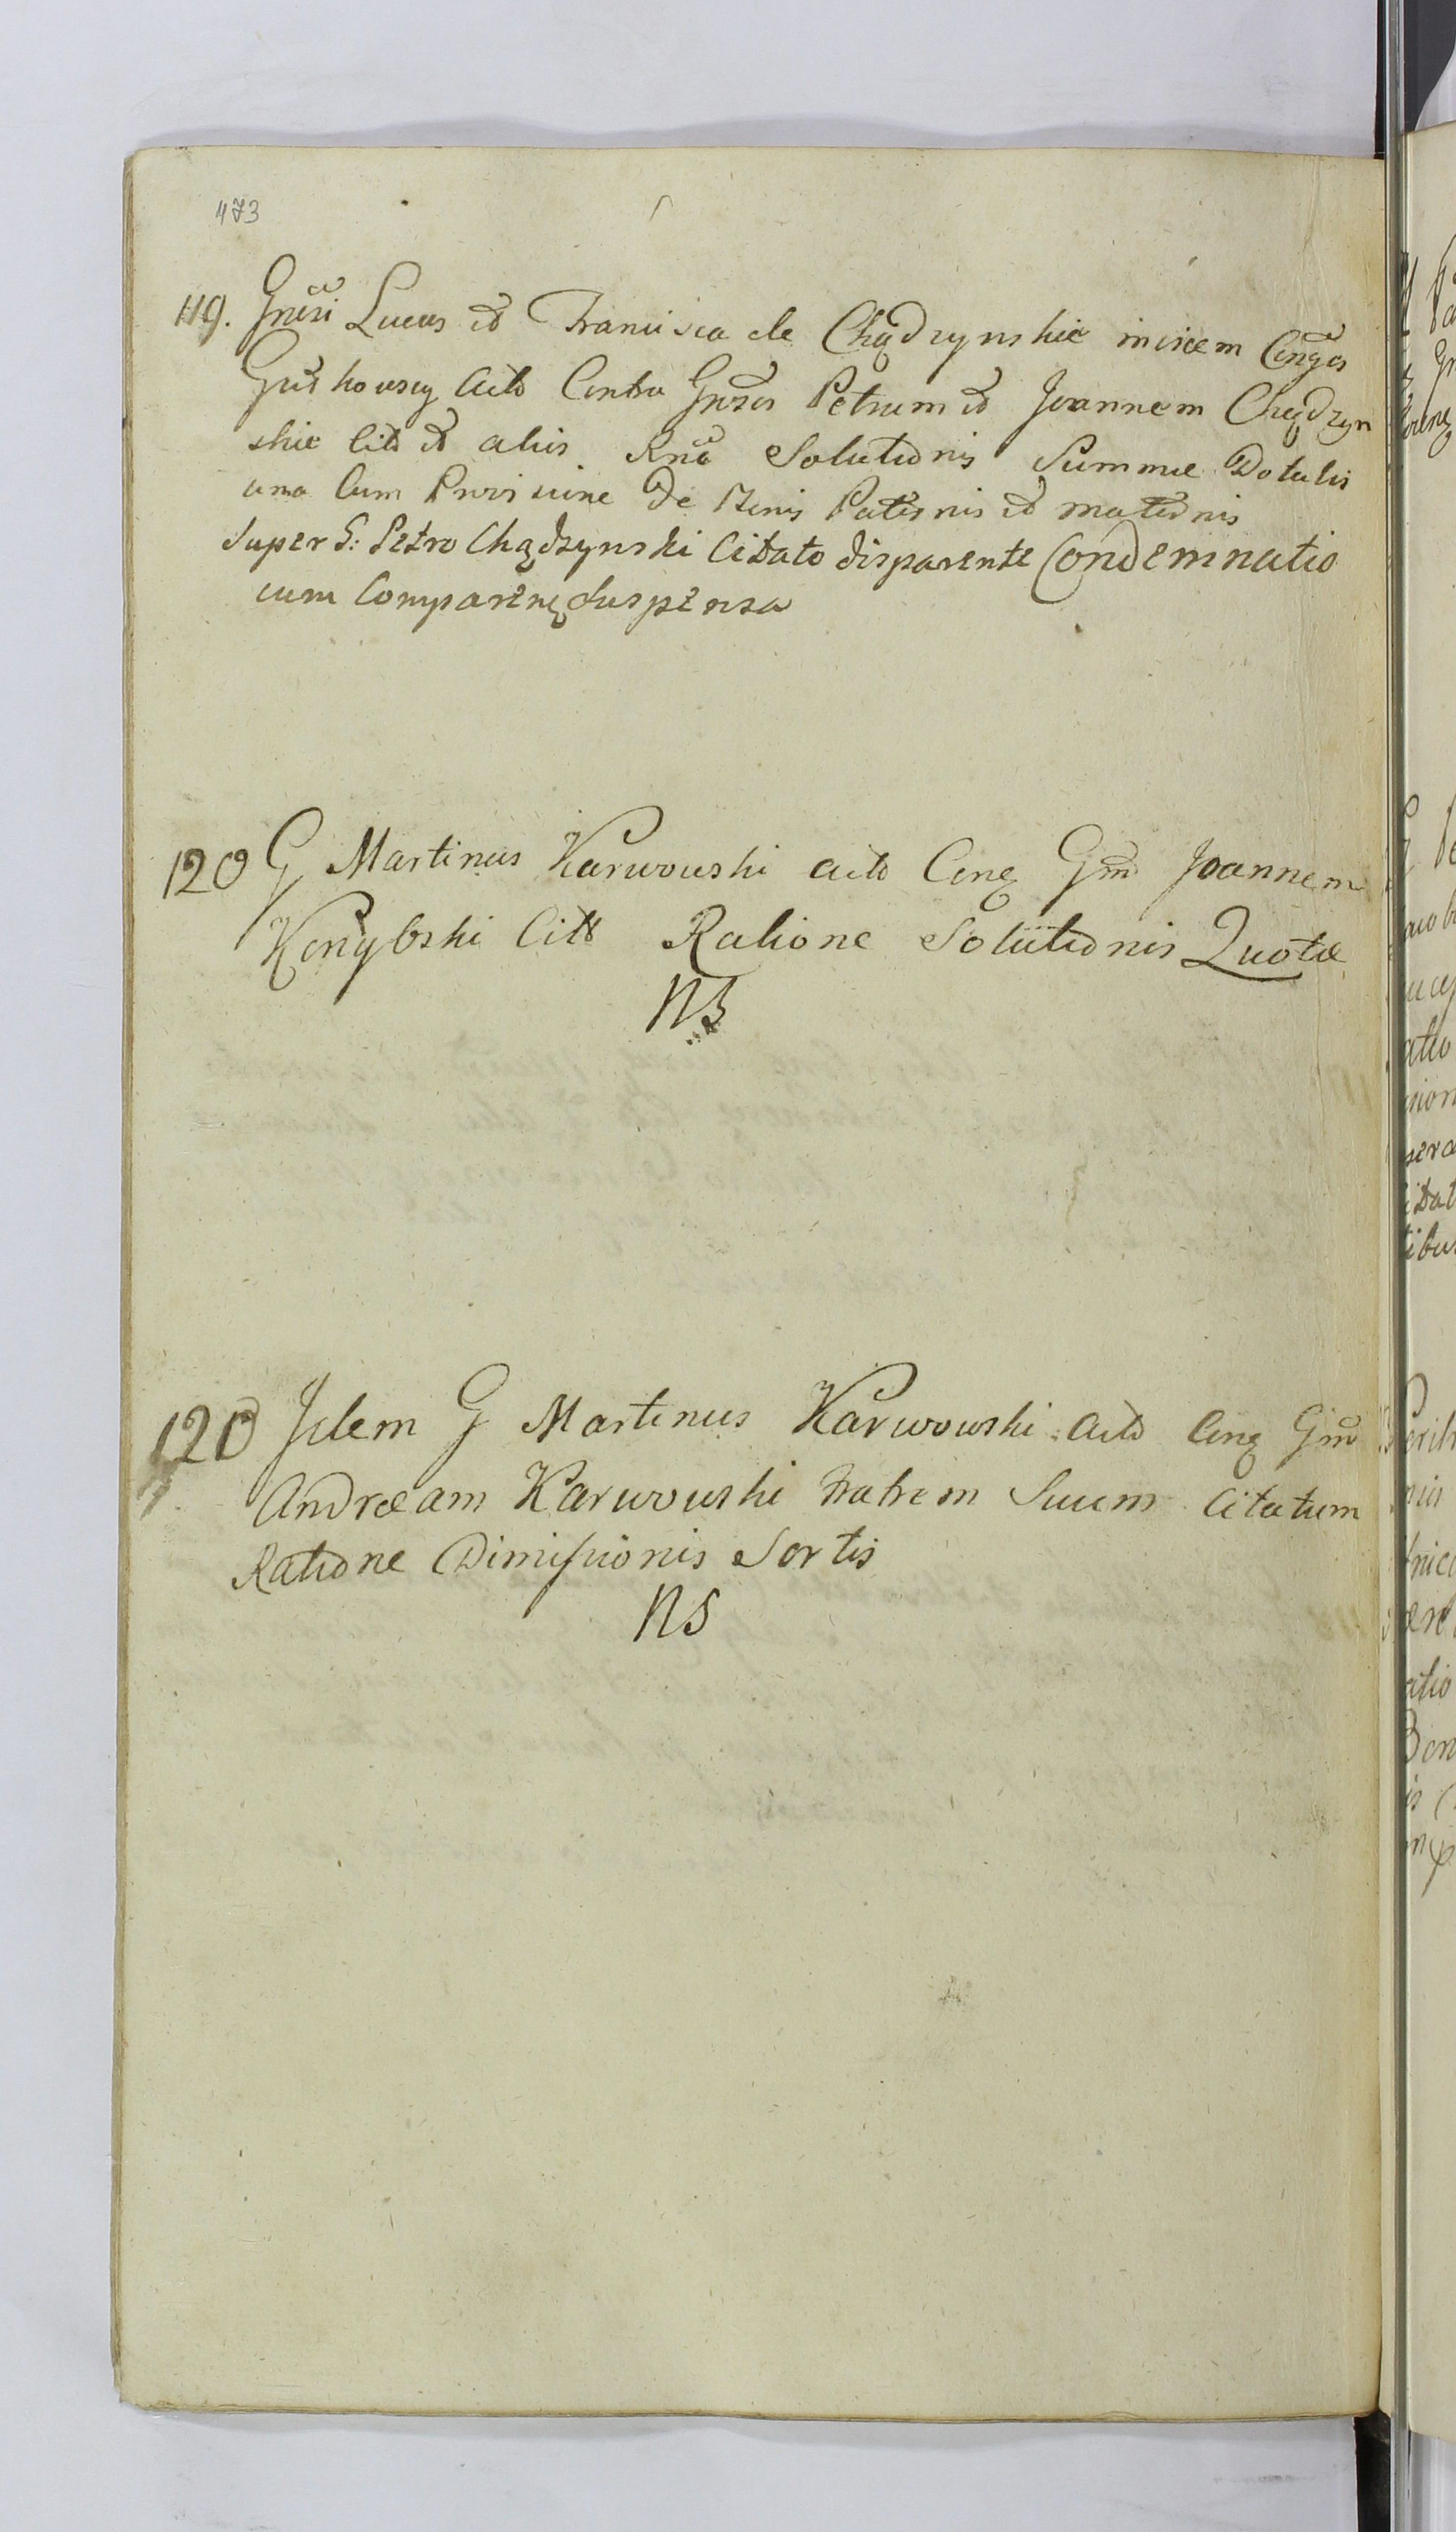 473
119. Gnẽsi Lucas et Francisca de Chądzynskie invicem Conges
Gus kowscy Acto Contra Gnẽsos Petrum et Joannem Chądzyn
skie Cito et aliis Rnẽ Solutionis Summae Dotalis
una Cum Provisione De Bonis Paternis et maternis
super G: Petro Chądzynski Citato disparente Condemnatio
cum Comparenẽ suspensa
120 G Martinus Karwowski acto Conẽ Gm̃ Joannem
Citt Ratione Solutionis Quotae
NS
120 Idem G Martinus Karwowski Acto Conẽ Gm̃
Andream Karwowski fratrem Suum Citatum
Ratione Dimissionis Sortis
NS